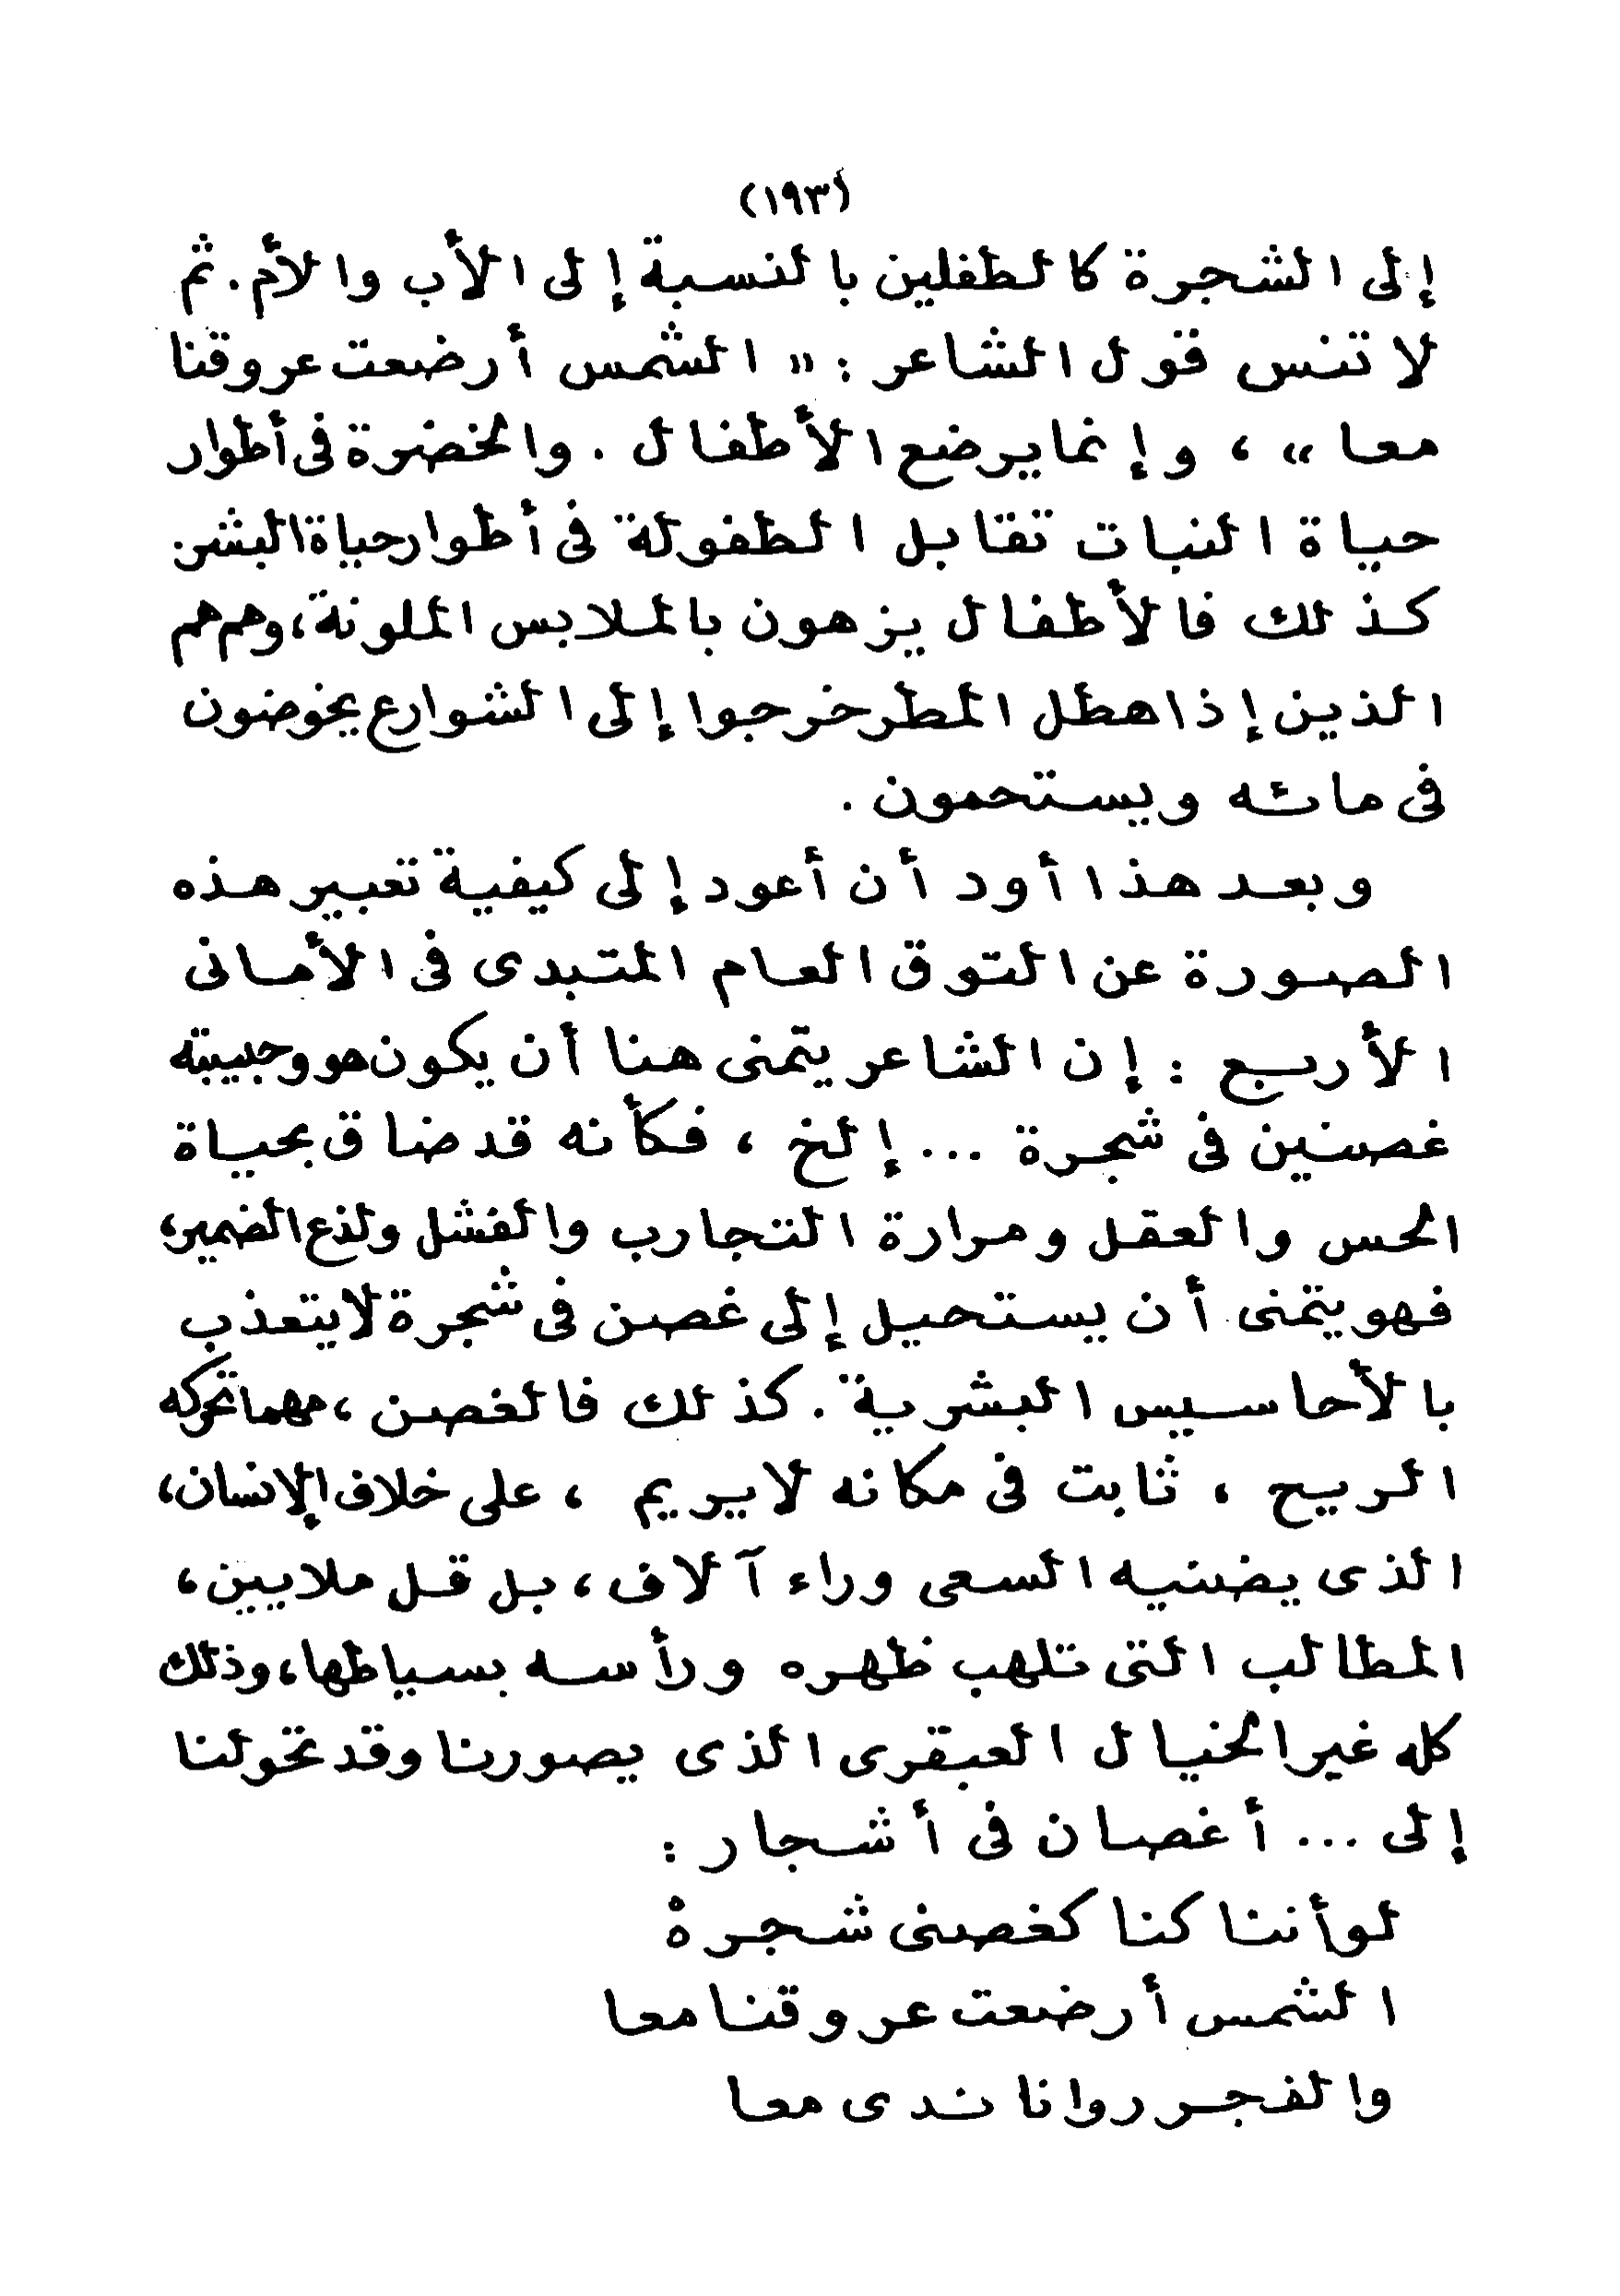 (١٩٣)
إلى الشجرة كالطفلين بالنسبة إلى الأب والأم. ثم
لا تنس قول الشاعر : « الشمس أرضعت عروقنا
معا » ، وإنما يرضع الأطفال . والخضرة فى أطوار
حياة النبات تقابل الطفولة فى أطوار حياة البشر.
كذلك فالأطفال يزهون بالملابس الملونة، وهم هم
الذين إذا هطل المطر خرجوا إلى الشوارع يخوضون
فى مائه ويستحمون .
وبعد هذا أود أن أعود إلى كيفية تعبير هذه
الصورة عن التوق العام المتبدى فى الأمانى
الأربع : إن الشاعر يتمنى هنا أن يكون هو وحبيبته
غصنين فى شجرة ... إلخ ، فكأنه قد ضاق بحياة
الحس والعقل ومرارة التجارب والفشل ولذع الضمير،
فهو يتمنى أن يستحيل إلى غصن فى شجرة لا يتعذب
بالأحاسيس البشرية . كذلك فالغصن ، مهما تحركه
الريح ، ثابت فى مكانه لا يريم ، على خلاف الإنسان،
الذى يضنيه السعى وراء آلاف ، بل قل ملايين ،
المطالب التى تلهب ظهره ورأسه بسياطها، وذلك
كله غير الخيال العبقرى الذى يصورنا وقد تحولنا
إلى ... أغصان فى أشجار :
لو أننا كنا كغصنى شجرهْ
الشمس أرضعت عروقنا معا
والفجر روانا ندى معا